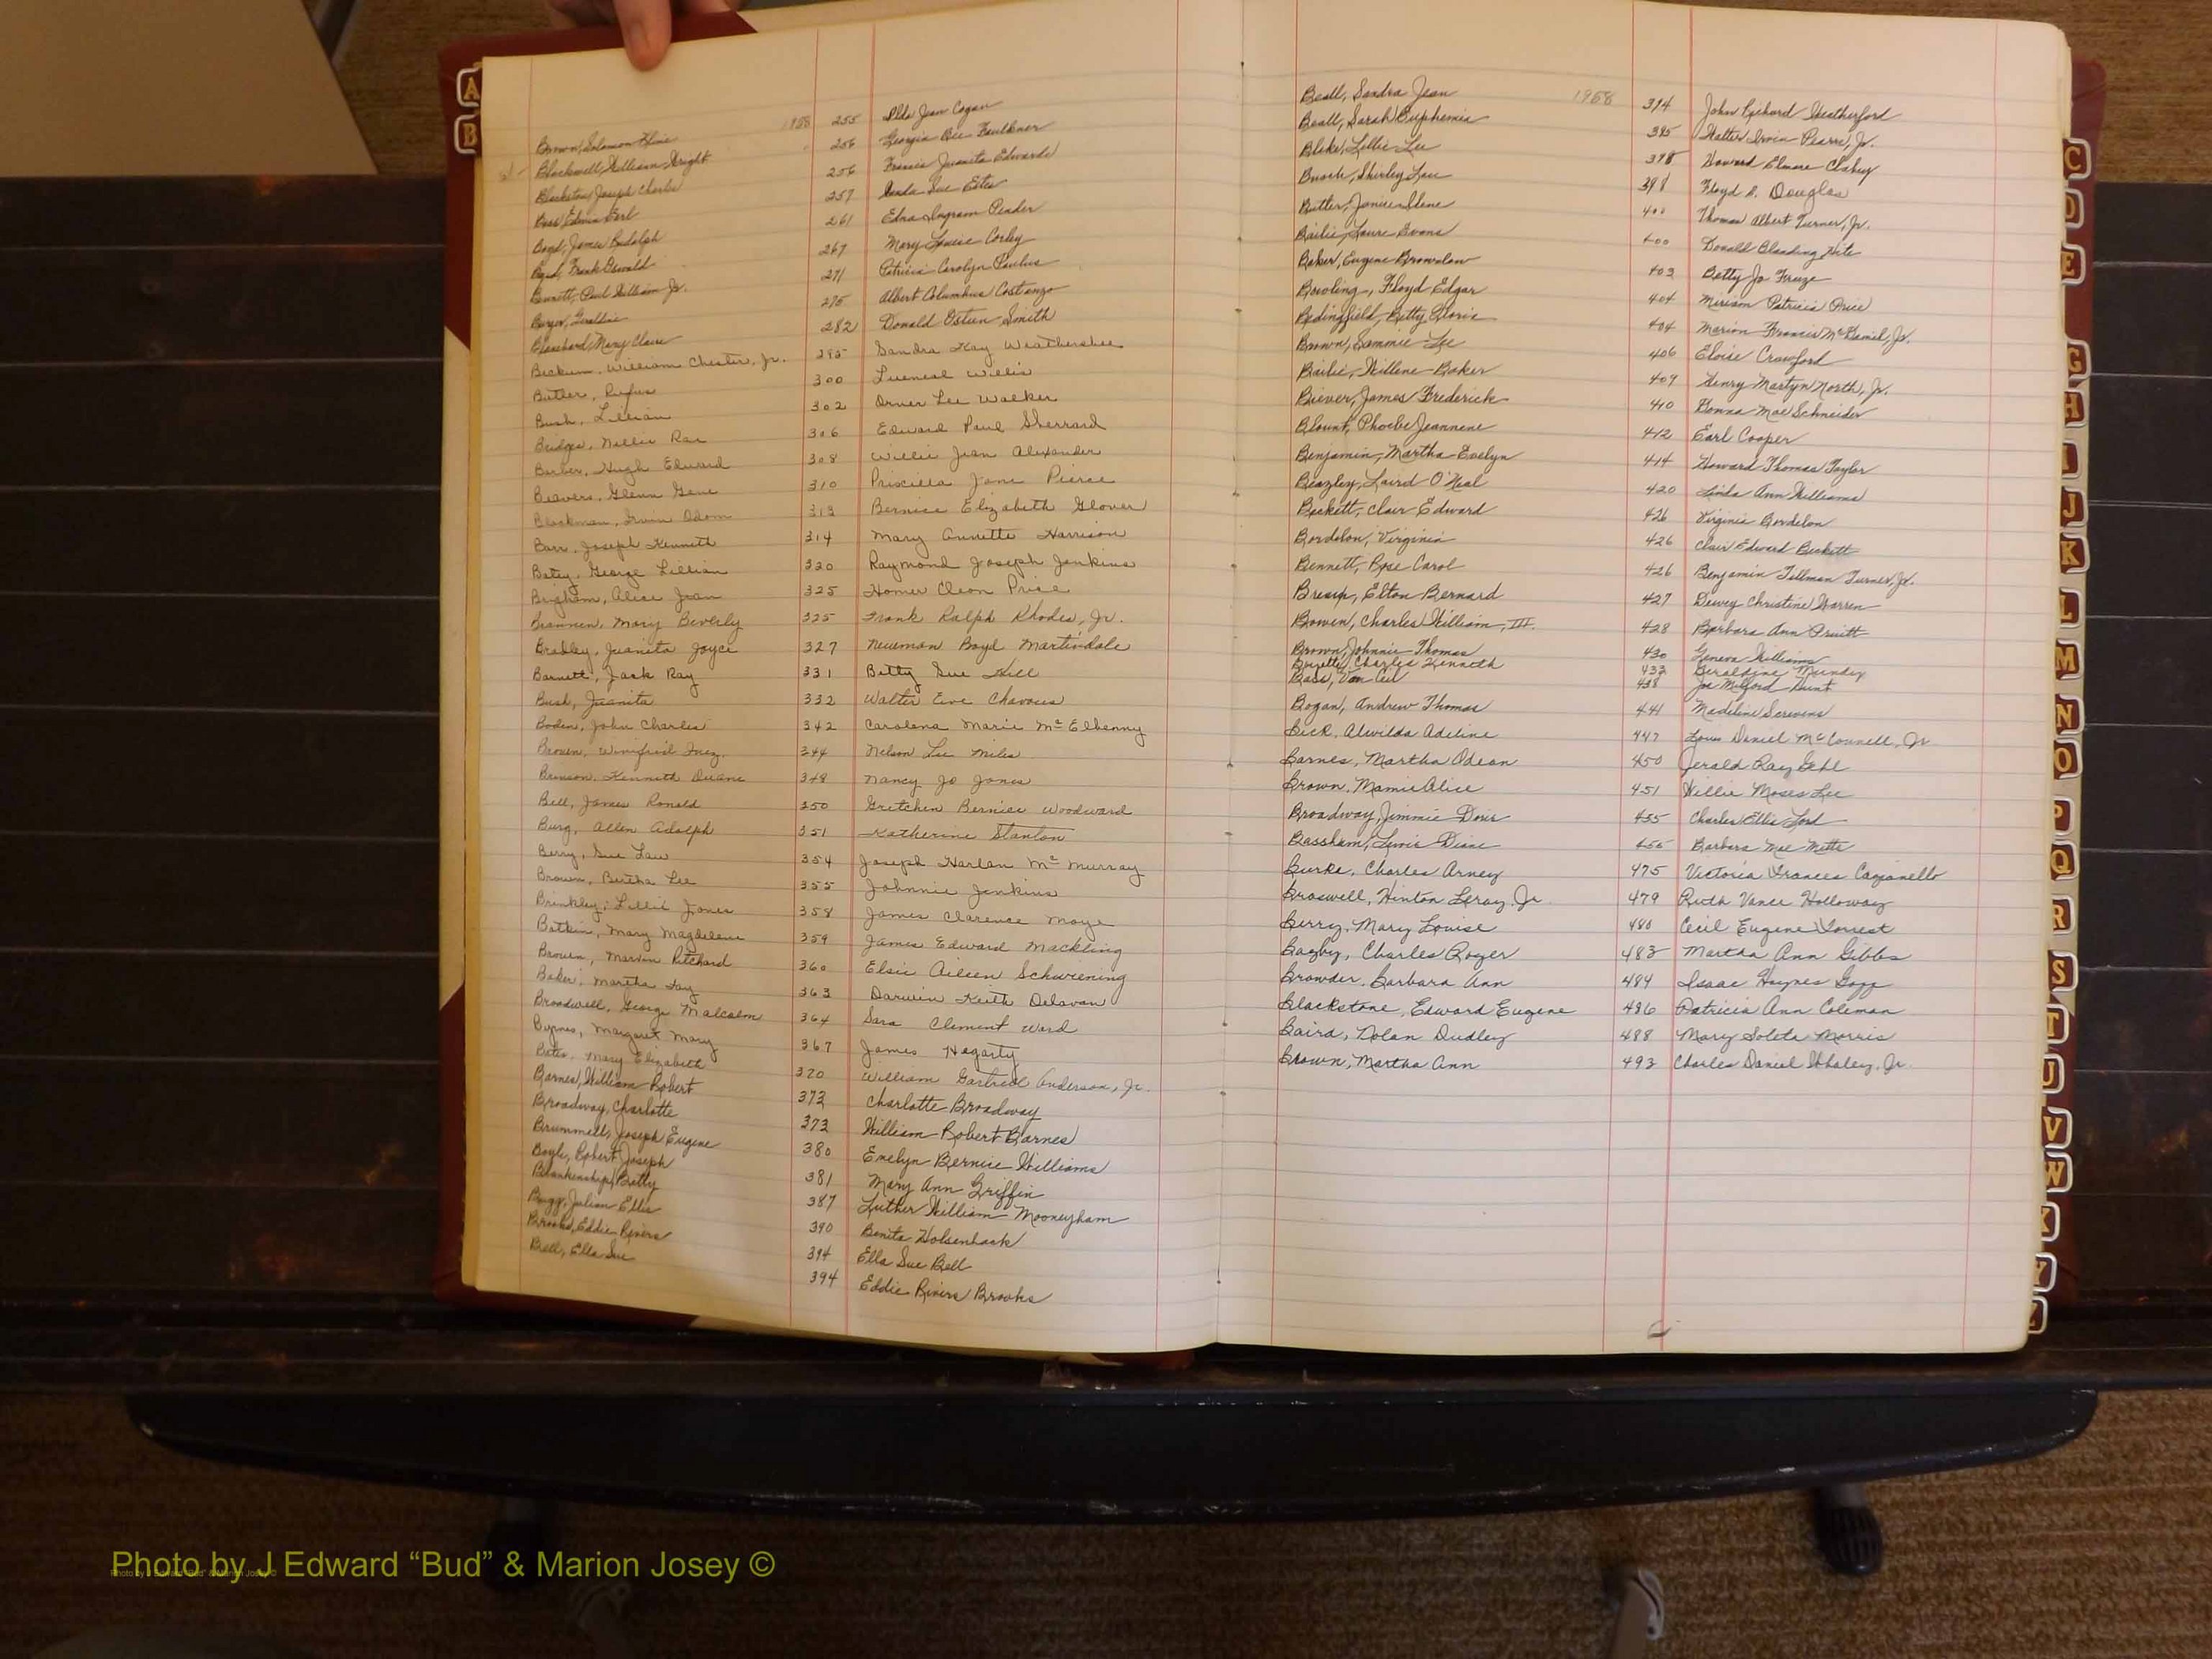 A
B
1958
Brown, Solomon Kline 255 Ilda Jean Cogan
Blackwell, William Wright 256 Georgia Bee Faulkner
Blackston, Joseph Charles 256 Francis Juanita Edwards
Bass, Edwin Earl 257 Linda Sue Estes
Boyd, James Rudolph 261 Edna Ingram Pender
Boyd, Frank Oswald 267 Mary Louise Corley
Bennett, Paul William Jr. 271 Patricia Carolyn Paulus
Geraldine 275 Albert Columbus Costanzo
Blanchard, Mary Claire 282 Donald Osteen Smith
Beckum, William Chester, Jr. 295 Sandra Kay Weathersbee
Butler, Rufus 300 Lueneal Willis
Bush, Lillian 302 Orner Lee Walker
Bridges, Nellie Rae 306 Edward Paul Sherrard
Barber, Hugh Edward 308 Willie Jean Alexander
Beavers, Glenn Gene 310 Priscilla Jane Pierce
Blackman, Irvin Odom 313 Bernice Elizabeth Glover
Barr, Joseph Kenneth 314 Mary Annette Harrison
Batey, George Lillian 320 Raymond Joseph Jenkins
Brigham, Alice Jean 325 Homer Cleon Price
Brannen, Mary Beverly 325 Frank Ralph Rhodes, Jr.
Bradley, Juanita Joyce 327 Newman Boyd Martindale
Barnett, Jack Ray 331 Betty Sue Hill
Bush, Juanita 332 Walter Eve Chavous
Boden, John Charles 342 Carolena Marie McElhenny
Brown, Winifred Inez 344 Nelson Lee Miles
Brinson, Kenneth Duane 348 Nancy Jo Jones
Bell, James Ronald 350 Gretchen Bernice Woodward
Burg, Allen Adolph 351 Katherine Stanton
Berry, Sue Law 354 Joseph Harlan McMurray
Brown, Bertha Lee 355 Johnnie Jenkins
Brinkley, Lillie Jones 358 James Clarence Moye
Botkin, Mary Magdelene 359 James Edward Mackling
Brown, Marvin Pitchard 360 Elsie Aileen Schwiening
Baker, Martha Fay 363 Darwin Keith Delavan
Broadwell, George Malcolm 364 Sara Clement Ward
Byrnes, Margaret Mary 367 James Hegarty
Bates, Mary Elizabeth 370 William Gartrell Anderson, Jr.
Barnes, William Robert 373 Charlotte Broadway
Broadway, Charlotte 373 William Robert Barnes
Brummell, Joseph Eugene 380 Emelyn Bernice Williams
Boyle, Robert Joseph 381 Mary Ann Griffin
Blankenship, Betty 387 Luther William Mooneyham
Bugg, Julian Ellis 390 Benita Holsenback
Brooks, Eddie Rivers 394 Ella Sue Bell
Bell, Ella Sue 394 Eddie Rivers Brooks
1958
Beall, Sandra Jean 394 John Richard Weatherford
Beall, Sarah Euphemia 395 Walter Irvin Pearre, Jr.
Blake, Lillie Lee 398 Howard Elmore Clakey
Shirley Lou 398 Floyd B. Douglas
Butler, Janice Ilene 400 Thomas Albert Turner, Jr.
Bailie, Laura Evans 400 Donald Blanding Kite
Baker, Eugene Brownlow 403 Betty Jo
Bowling, Floyd Edgar 404 Miriam Patricia Price
Bedingfield, Betty Gloria 404 Marion Francis McDaniel, Jr.
Brown, Sammie Lee 406 Eloise Crawford
Bailie, Willene Baker 409 Henry Martyn North, Jr.
Biever, James Frederick 410 Donna Mae Schneider
Blount, Phoebe Jeannene 412 Earl Cooper
Benjamin, Martha Evelyn 414 Howard Thomas Taylor
Beazley, Laird O'Neal 420 Linda Ann Williams
Beckett, Clair Edward 426 Virginia Bordelon
Bordelon, Virginia 426 Clair Edward Beckett
Bennett, Rose Carol 426 Benjamin Tillman Turner, Jr.
Elton Bernard 427 Dewey Christine Warren
Bowen, Charles William, III. 428 Barbara Ann Pruitt
Brown, Johnnie Thomas 430 Geneva Williams
Charles Kenneth 433 Geraldine Mundy
Bass, Van 438 Joe Milford Hunt
Bogan, Andrew Thomas 441 Madeline Scrivens
Bick, Alwilda Adeline 447 Louis Daniel McConnell, Jr.
Barnes, Martha Odean 450 Jerald Ray Gehl
Brown, Mamie Alice 451 Willie Moses Lee
Broadway, Jimmie Doris 455 Charles Ellis Lord
Bassham, Lewis Diane 455 Barbara Mae Mette
Burke, Charles Arney 475 Victoria Frances Cazzanello
Braswell, Hinton Leroy, Jr. 479 Ruth Vance Holloway
Berry, Mary Louise 480 Cecil Eugene Forrest
Bagby, Charles Roger 483 Martha Ann Gibbs
Browder, Barbara Ann 484 Isaac Haynes Goff
Blackstone, Edward Eugene 486 Patricia Ann Coleman
Baird, Nolan Dudley 488 Mary Soleta Morris
Brown, Martha Ann 493 Charles Daniel Whaley, Jr.
C
D
E
G
H
I
J
K
L
M
N
O
P
Q
R
S
T
U
V
W
X
Y
Z
Photo by J Edward “Bud” & Marion Josey ©
Photo by J Edward “Bud” & Marion Josey ©